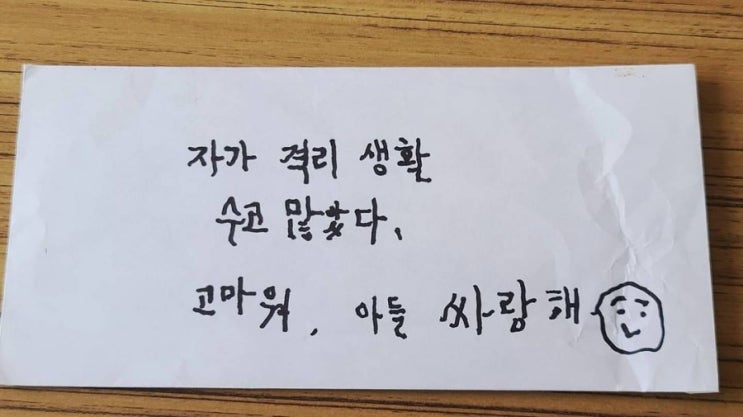 자가 격리 생활
수고 많았다.
고마워. 아들 싸랑해